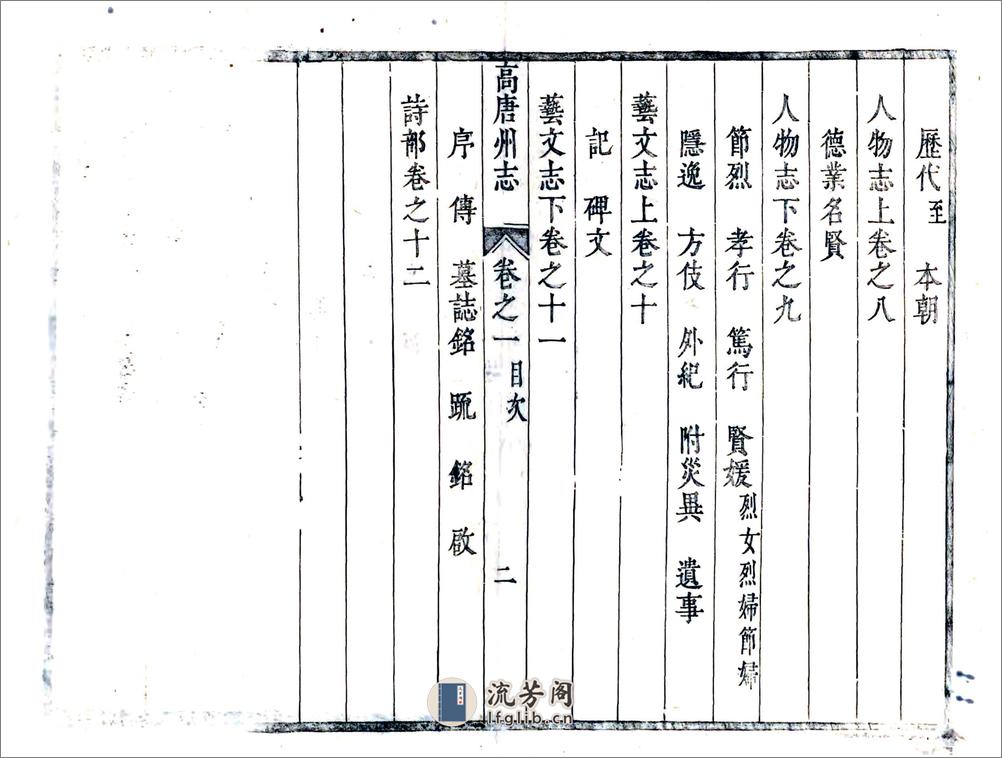 歷代至　本朝
人物志上卷之八
德業名賢
人物志下卷之九
節烈　孝行　篤行　賢媛烈女烈婦節婦
隱逸　方伎　外紀　附災異　遺事
藝文志上卷之十
記　碑文
藝文志下卷之十一
高唐州志　卷之一目次　二
序　傳　墓誌銘　䟽　銘　啟
詩部卷之十二
流芳阁
lfglib.cn